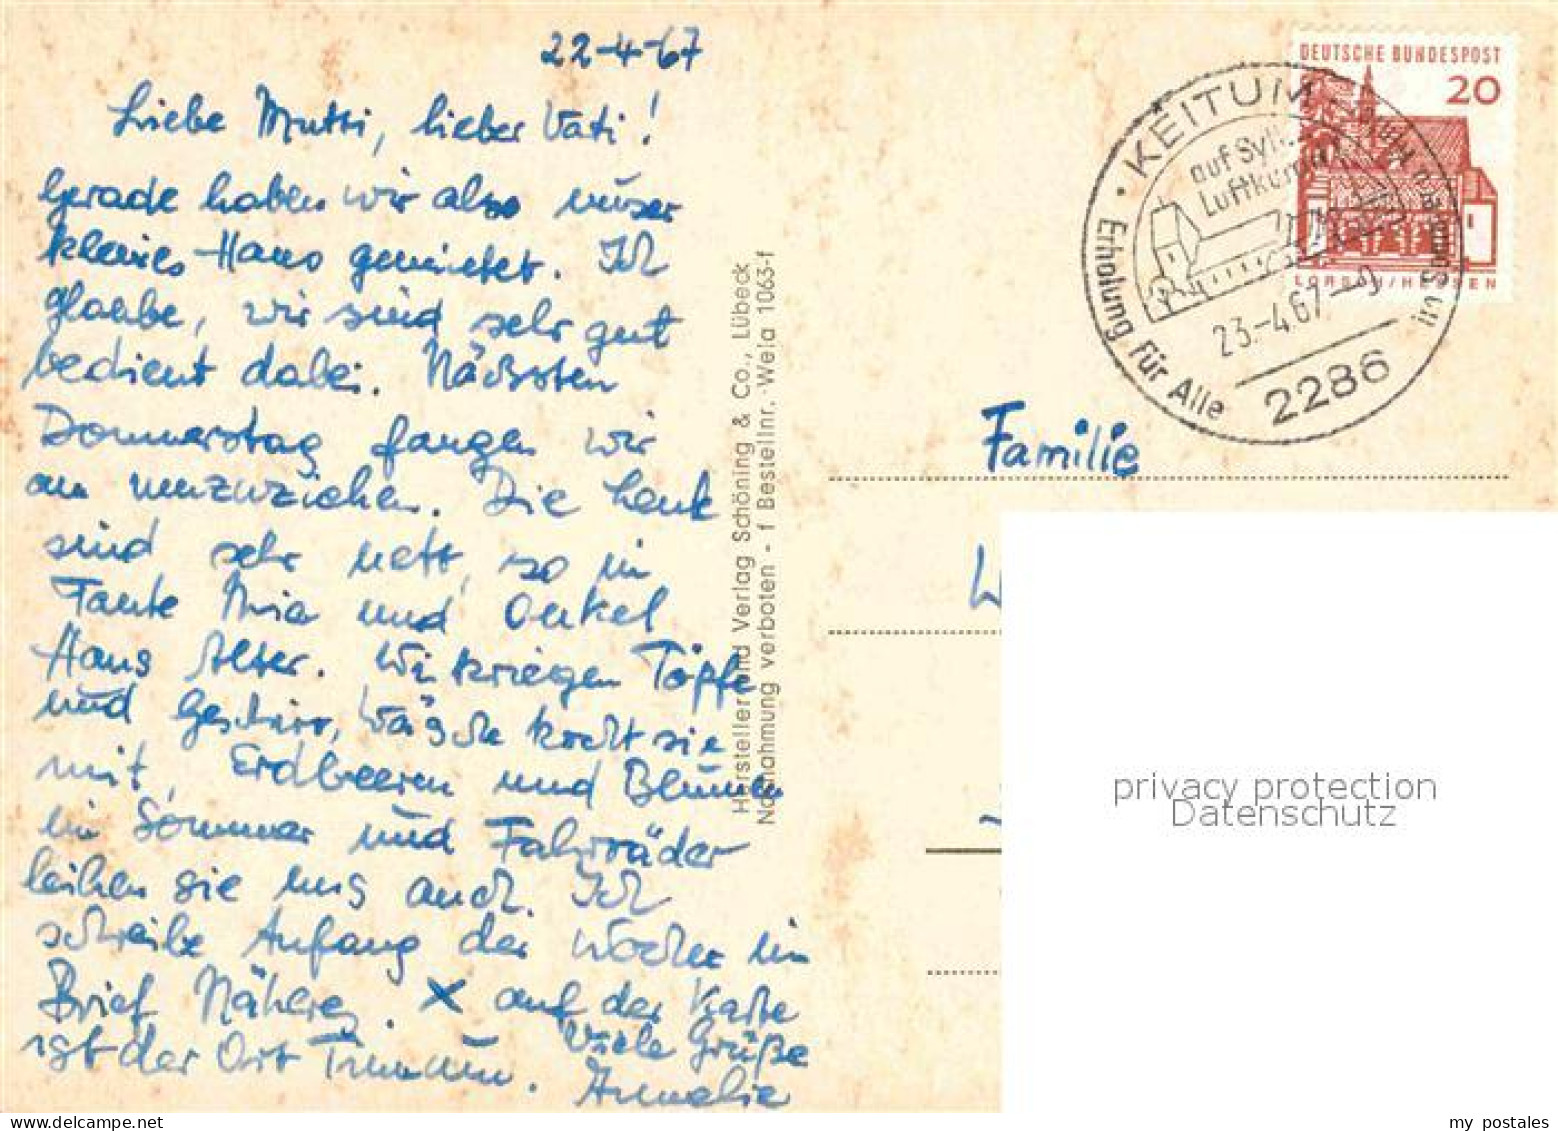 22-4-67
Liebe Mutti, lieber Vati!
Gerade haben wir also unser
kleines Haus gemietet. Ich
glaube, wir sind sehr gut
bedient dabei. Nächsten
Donnerstag fangen wir
an umzuziehen. Die Leute
sind sehr nett, so in
Tante Mia und Onkel
Hans Alter. Wir kriegen Töpfe
und Geschirr, Wäsche kocht sie
mit, Erdbeeren und Blumen
im Sommer und Fahrräder
leihen sie uns auch. Ich
schreibe Anfang der Woche im
Brief Näheres. X auf der Karte
ist der Ort Tinnum.
Viele Grüße
Annelie
Hersteller und Verlag Schöning & Co., Lübeck
Nachahmung verboten - f Bestellnr. - Wela 1063-f
DEUTSCHE BUNDESPOST
20
LORSCH/HESSEN
KEITUM
auf Sylt
Luftkurort
23.-4.67-9
Erholung für Alle
2286
Familie
privacy protection
Datenschutz
my postales